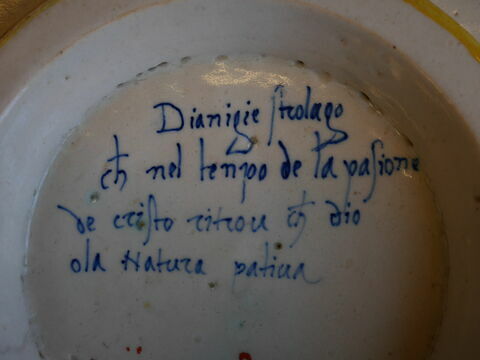 Dianigie strolago
ch nel tenpo de la pasione
de cristo ritrou ch dio
ola Natura patiua